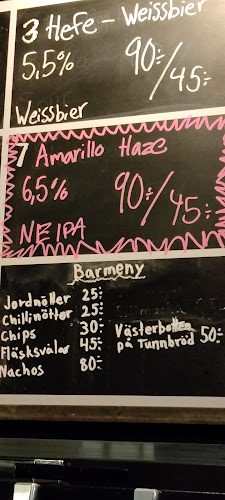 3 Hefe - Weissbier
5,5% 90:-/45:-
Weissbier
7 Amarillo Haze
6,5% 90:-/45:-
NEIPA
Barmeny
Jordnötter 25:-
Chillinötter 25:-
Chips 30:-
Fläsksvålar 45:-
Nachos 80:-
Västerbotten
på Tunnbröd 50:-